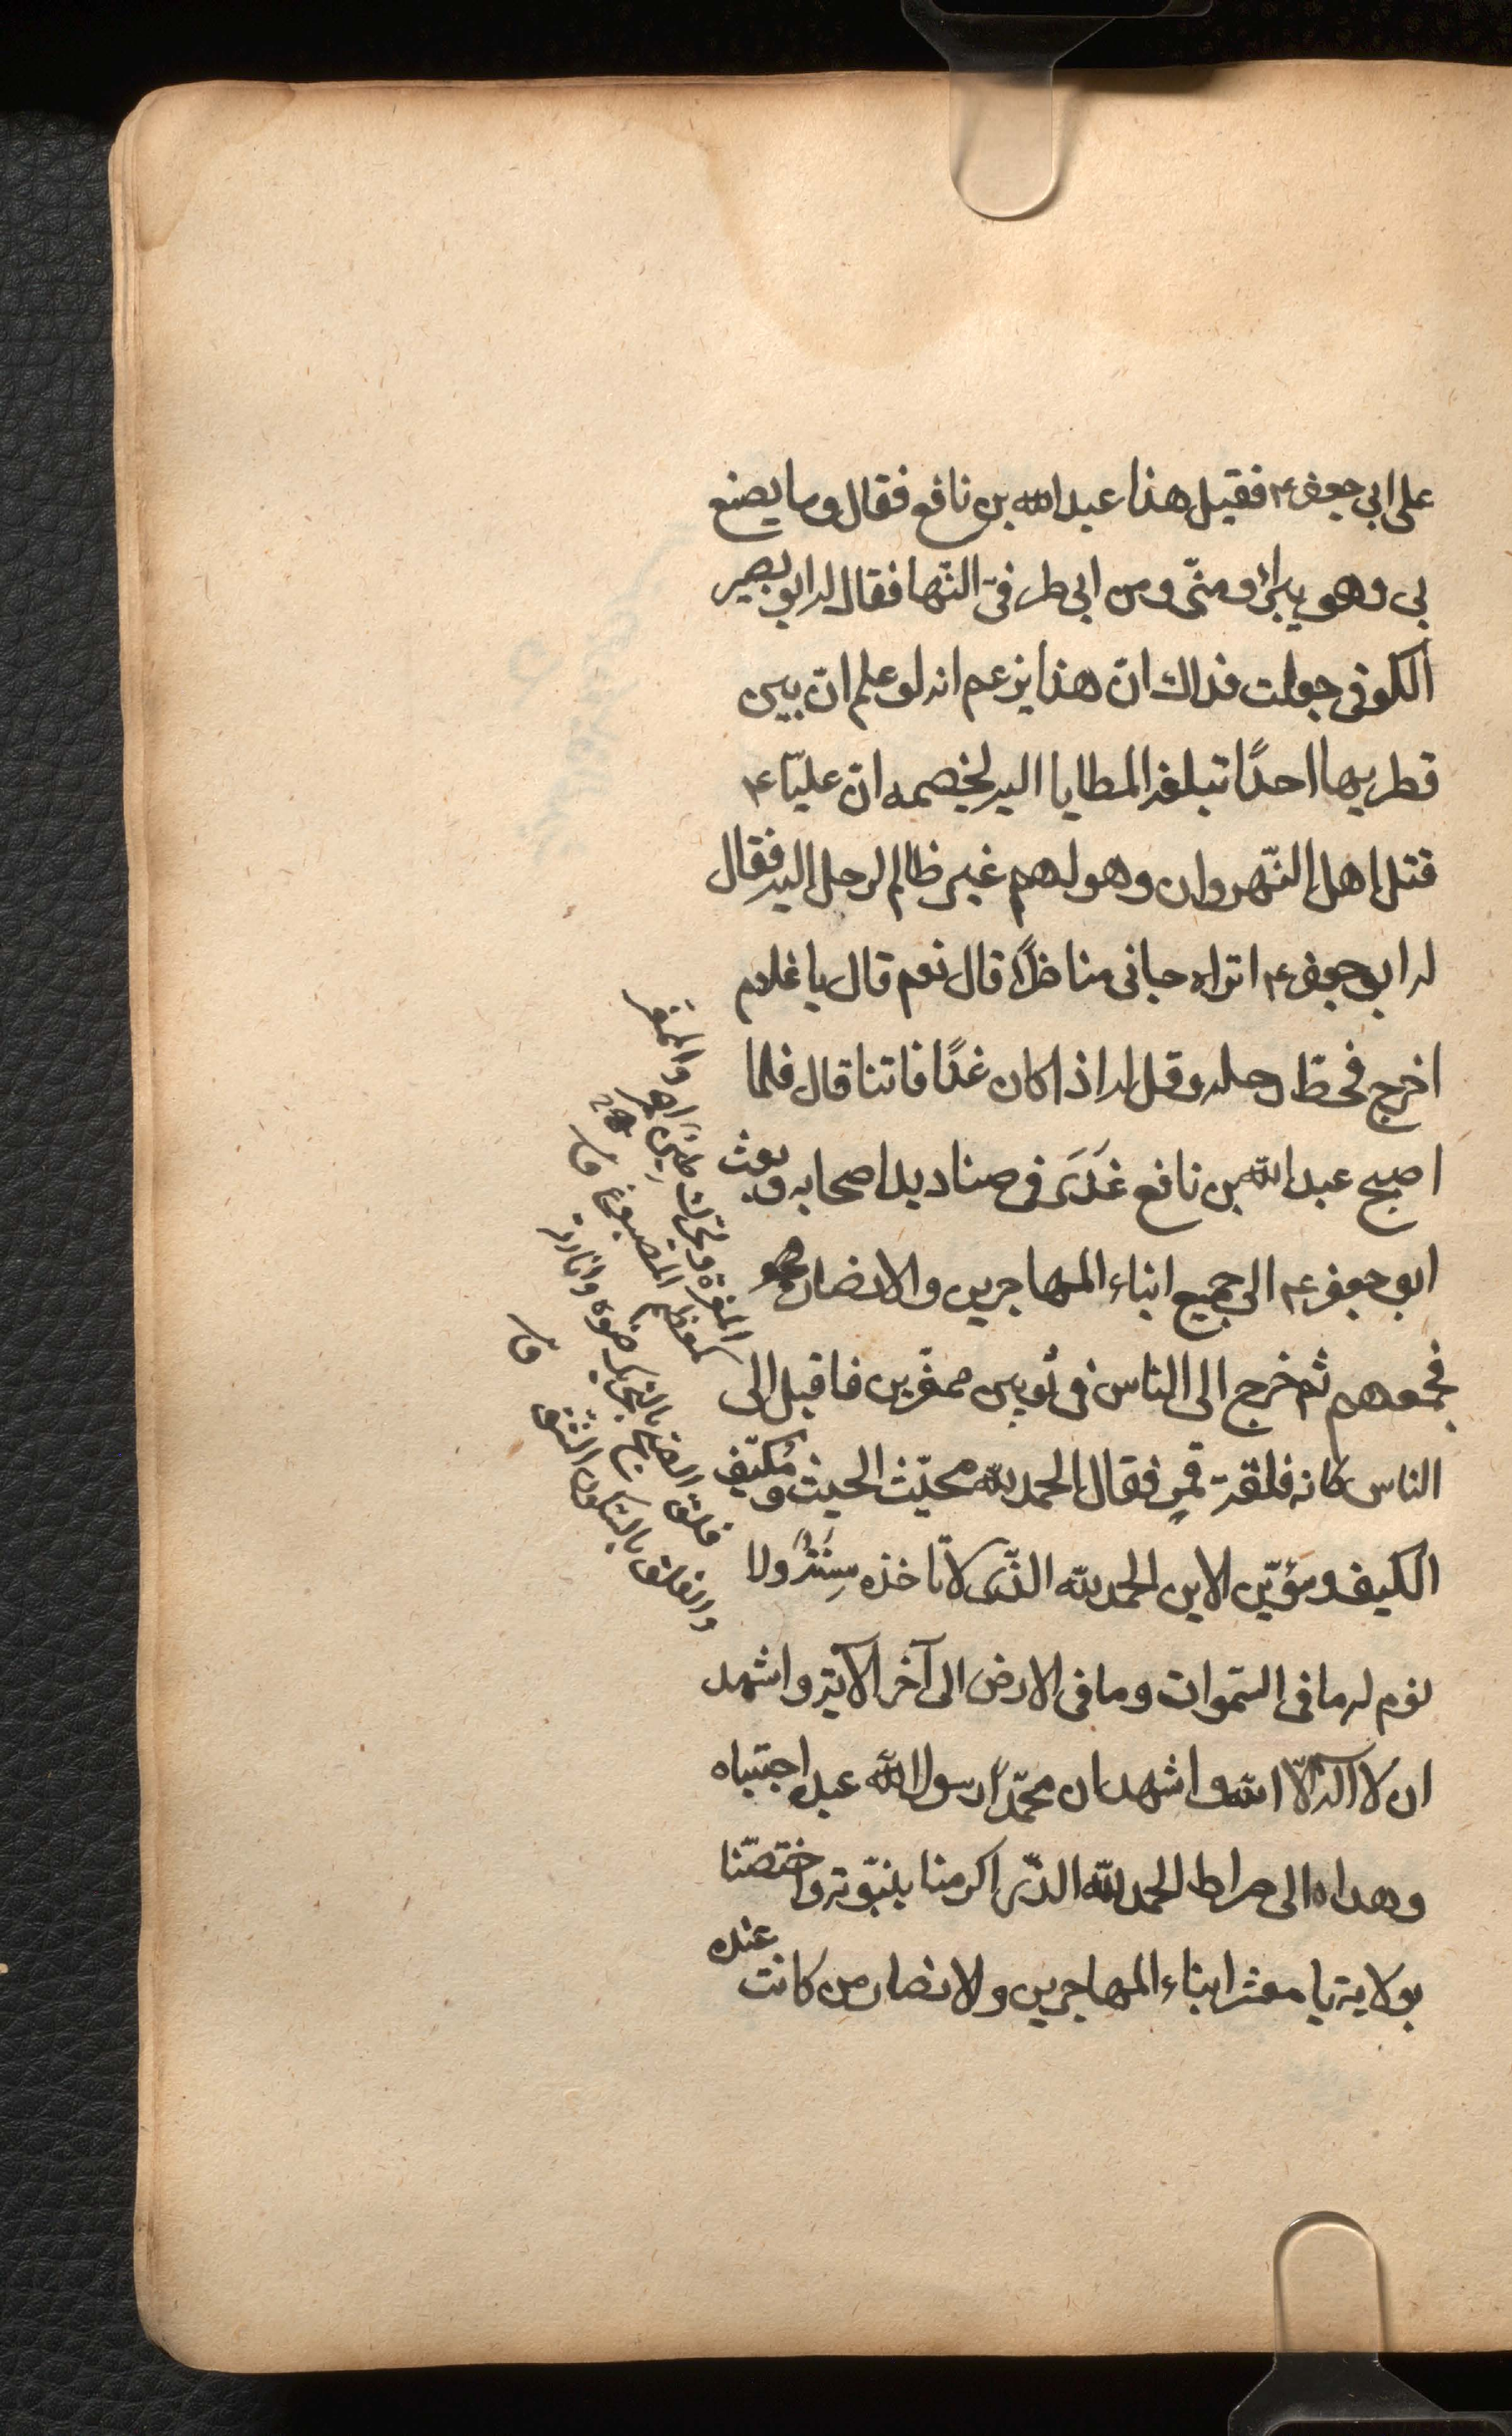 على ابي جعفر ع فقيل هذا عبد الله بن نافع فقال وما يصنع
بي وهو يبرأ ومنّى ومن ابي طرفىّ النّها فقال له ابو بصير
الكوفى جعلت فداك انّ هذا يزعم انه لو علم انّ بين
قطريها احدًا تبلغه المطايا اليه لخصمه انّ عليّا ع
قتل اهل النّهروان وهو لهم غير ظالم لرحل اليه فقال
له ابو جعفر ع اتراه جانى مناظرًا قال نعم قال يا غلام
اخرج فحطّ رحله وقل له اذا كان غدًا فاتنا قال فلما
اصبح عبد الله بن نافع غَدَى فى صناديد اصحابه وبعث
ابو جعفر ع الى جميع ابناء المهاجرين والانصار
فجمعهم ثم خرج الى الناس فى ثوبين ممغّرين فاقبل الى
الناس كانه فلقة قمرٍ فقال الحمد لله محيّث الحيث ومُكيّف
الكيف ومؤيّن الاين الحمد لله الذّى لا تاخذه سِنَةٌ ولا
نوم له ما فى السّموات وما فى الارض الى آخر الآية واشهد
ان لا اله الّا الله واشهد ان محمّدًا رسول الله عبد اجتباه
وهداه الى صراط الحمد لله الذّى اكرمنا بنبّوته واختصّنا
بولاية يا معشر ابناء المهاجرين ولانصار من كانت عنده
المغرة ويحرّك طين احمر والممغّر
كمعظم المصبوغ بها ق
فلق الصبح بالتحريك ضوءه وانارته
والفلق بالسّكون الشّق ق